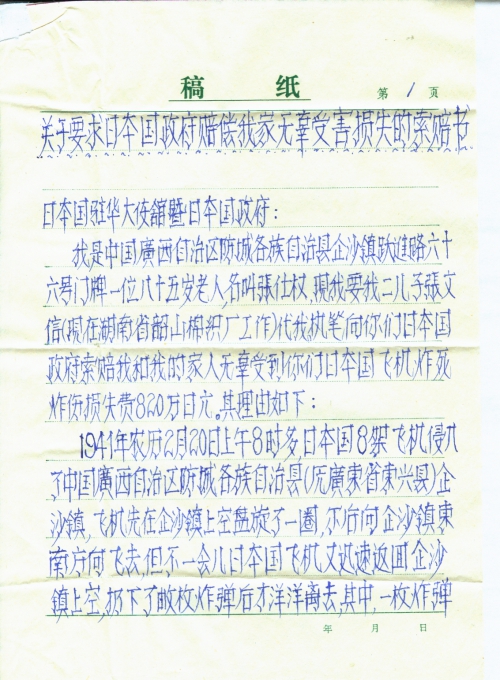 稿 纸
第 1 页
关于要求日本国政府赔偿我家无辜受害损失的索赔书
日本国驻华大使舘暨日本国政府：
我是中国廣西自治区防城各族自治县企沙镇跃進路六十
六号门牌一位八十五岁老人名叫張仕权，現我要我二儿子張文
信(现在湖南省韶山棉织厂工作)代我执笔向你们日本国
政府索赔我和我的家人无辜受到你们日本国飞机炸死
炸伤损失费820万日元。其理由如下：
1941年农历2月20日上午8时多日本国8架飞机侵入
了中国廣西自治区防城各族自治县(历廣東省東兴县)企
沙镇，飞机先在企沙镇上空盘旋了一圈，尔后向企沙镇東
南方向飞去，但不一会儿日本国飞机又迅速返回企沙
鎮上空，扔下了数枚炸弹后才洋洋离去，其中，一枚炸弹
年 月 日